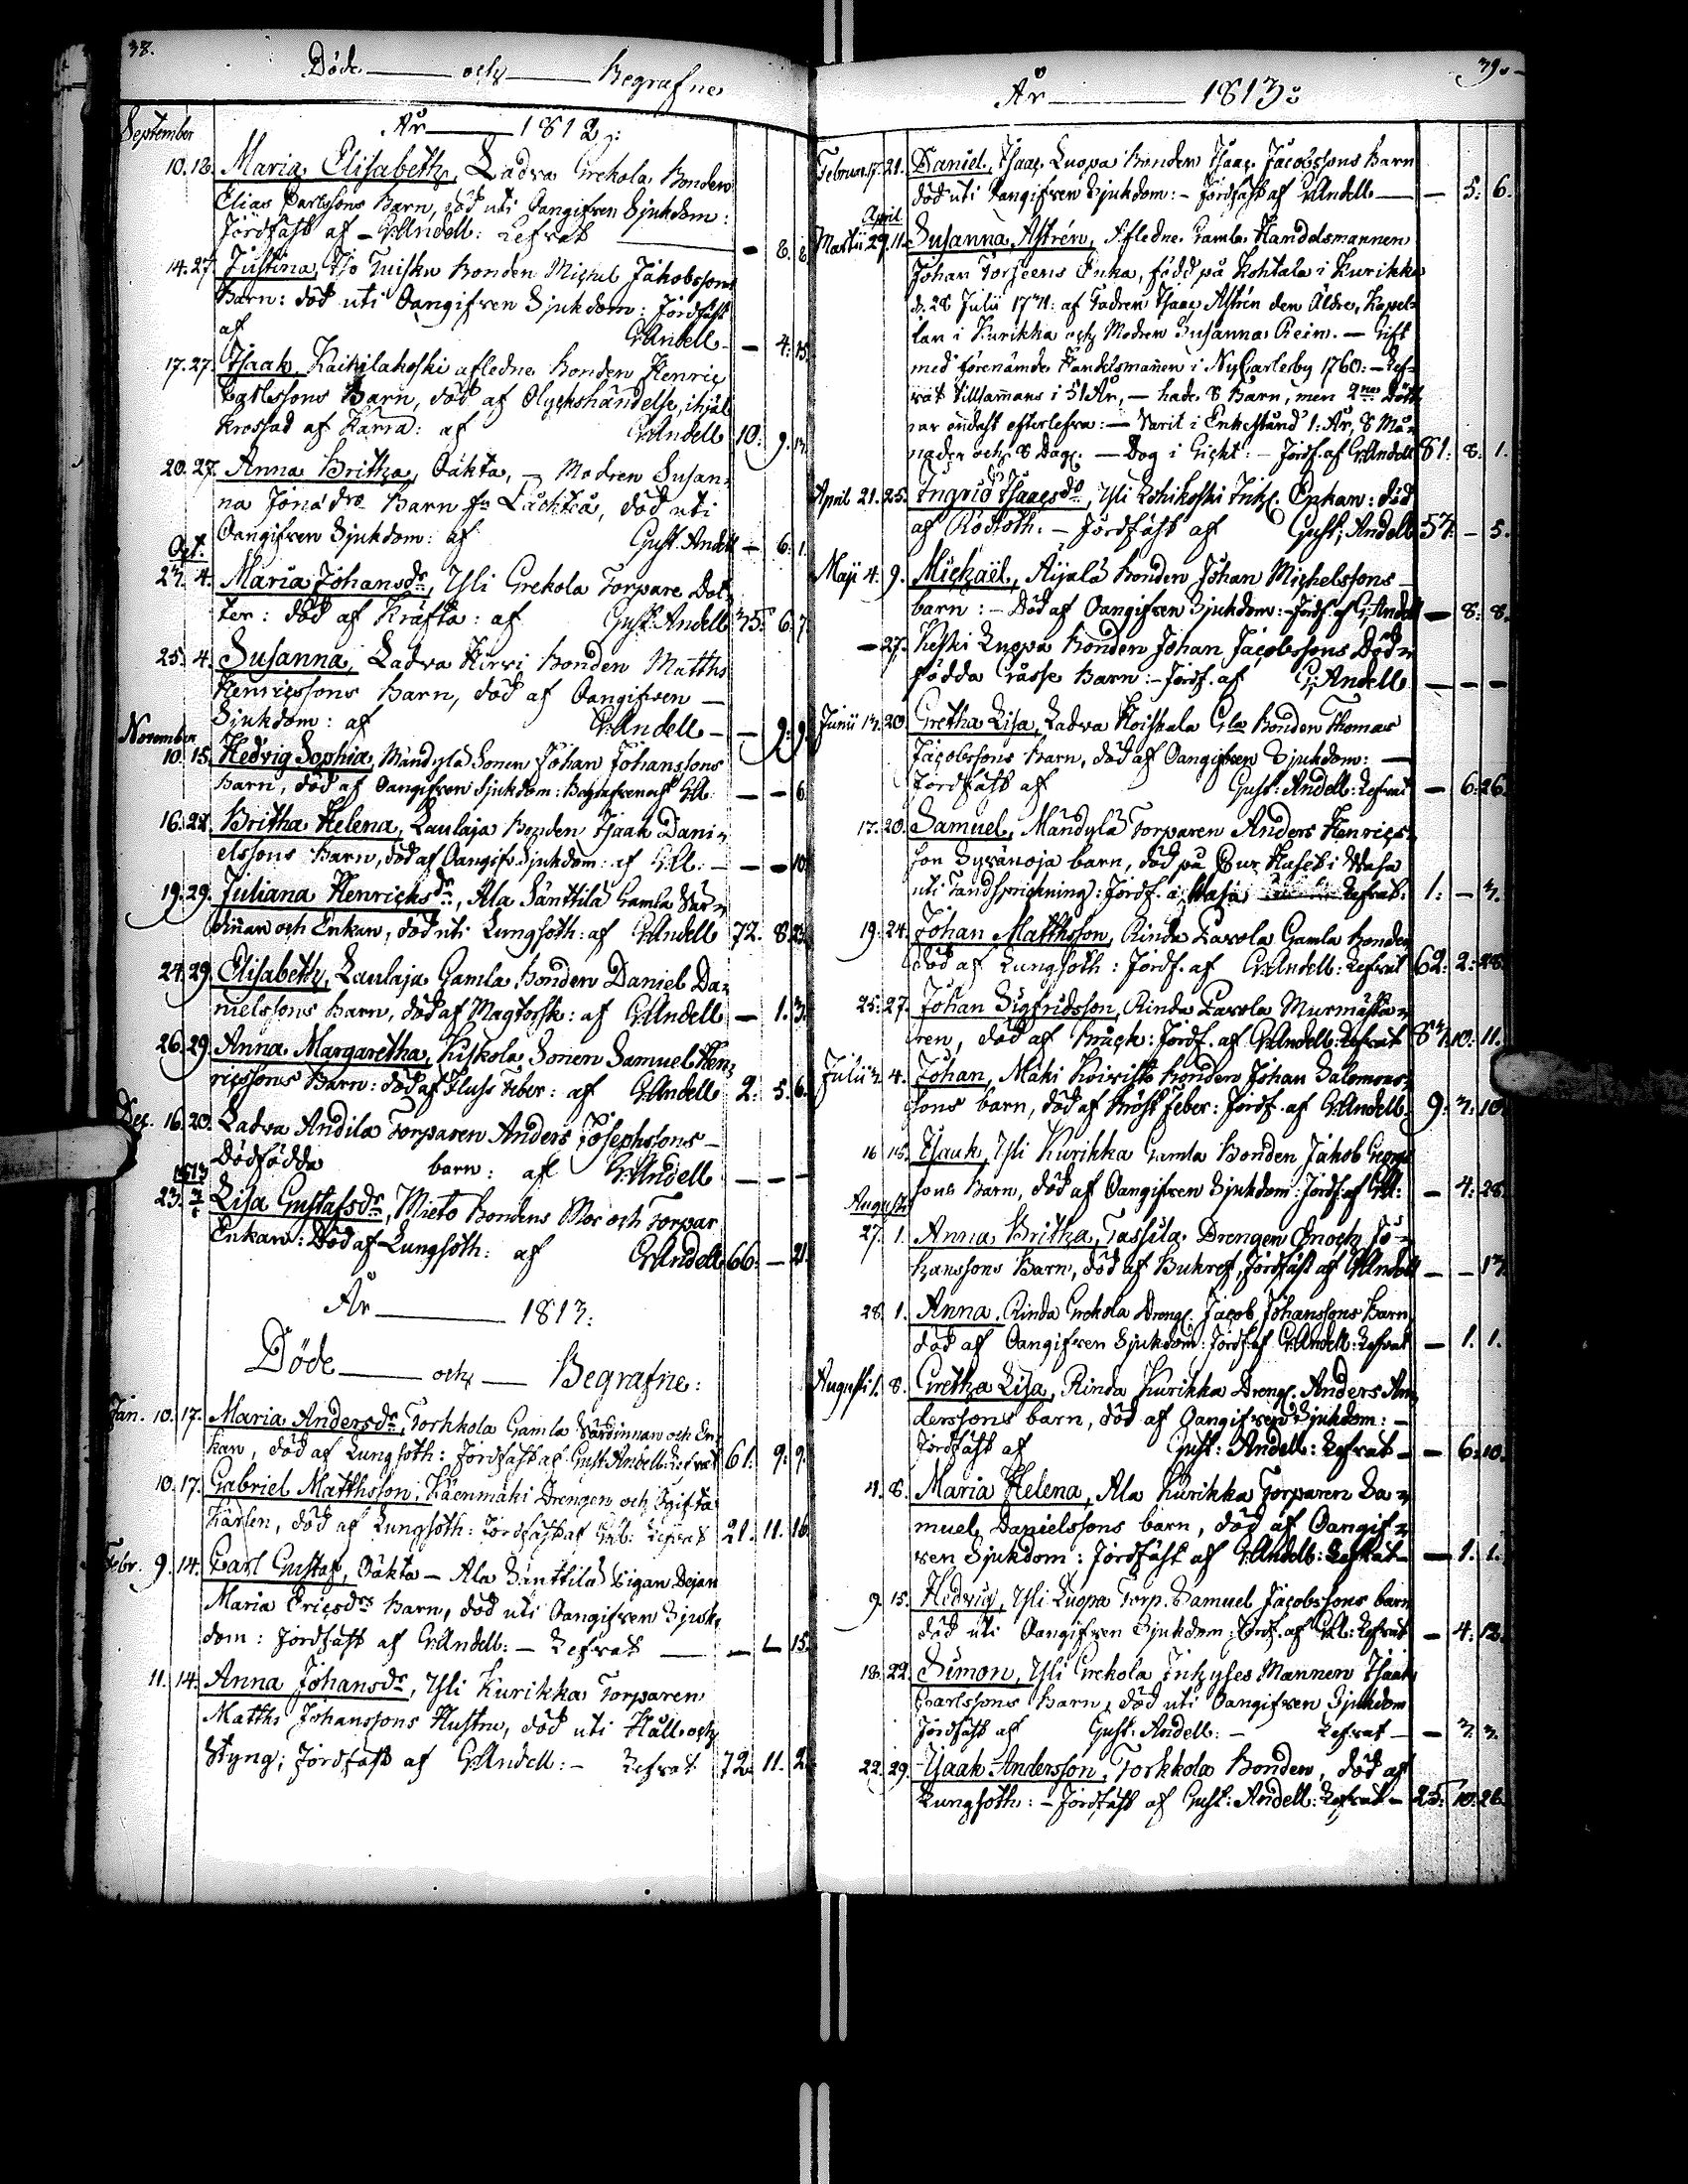 38.
Döde och Begrafne
År 1812:
September
10. 18. Maria Elisabeth, Ladva Grekola Bonden
Elias Carlssons Barn, död uti Oangifven Sjukdom:
Jordfäst af G: Andell: Lefvat — 8. 8
14. 27. Justina, Iso Tuisku Bonden Michel Jakobssons
Barn: död uti Oangifven Sjukdom: Jordfäst
af G: Andell — 4.
17. 27. Isaak, afledne Bonden Henric
Barn, död af Olyckshändelse, ihjäl
krossad af Kärra: af G: Andell 10: 9.
20. 27. Anna Britha, Oäkta, — Modren Susan-
na Barn död uti
Oangifven Sjukdom: af Gust. Andell — 6. 1.
Oct.
27. 4. Maria Johansdr, Yli Grekola Torpare Dot-
ter: död af Kräfta: af Gust: Andell 35: 6: 7
25. 4. Susanna, Ladva Hirvi Bonden Matths
Henricssons Barn, död af Oangifven —
Sjukdom: af G: Andell — 9: 9
November
10. 15. Hedvig Sophia, Mändylä Sonen Johan Johanssons
Barn, död af Oangifven Sjukdom: Begrafven af GA: — — 6
16. 22. Britha Helena, Laulaja Bonden Isaak Dani-
elssons Barn, död af Oangifv. Sjukdom: af GA: — — 10
19. 29. Juliana Henricksdr, Ala Sänttilä Gamla Vär-
dinnan och Enkan, död uti Lungsoth: af G: Andell 72. 8. 23.
24. 29. Elisabeth, Laulaja Gamla Bonden Daniel Da-
nielssons Barn, död af Magtorsk: af G: Andell — 1. 3.
26. 29. Anna Margaretha, Kiskola Sonen Samuel Hen-
ricssons Barn: död af Fluss Feber: af G: Andell 2: 5. 6.
Dec. 16. 20. Ladva Andila Torparen Anders Josephssons —
Dödfödda barn: af G: Andell — — —
1813
23. Lisa Gustafsdr, Mieto Bondens Mor och Torpar
Enkan: Död af Lungsoth: af G: Andell 66: — 21.
År 1813:
Döde och Begrafne:
Jan. 10. 17. Maria Andersdr, Torkkola Gamla Värdinnan och En-
kan, död af Lungsoth: Jordfäst af Gust. Andell: Lefvat 61: 9: 9.
10. 17. Gabriel Matthsson, Käenmäki Drengen och Ogifta
Karlen, död af Lungsoth: Jordfäst af GA: Lefvat 21. 11. 16.
Febr. 9. 14. Carl Gustaf, Oäkta — Ala Sänttilä Pigan Dejan
Maria Ericsdrs Barn, död uti Oangifven Sjuk-
dom: Jordfäst af G: Andell: — Lefvat — — 15.
11. 14. Anna Johansdr, Yli Kurikka Torparen
Matths Johanssons Hustru, död uti Håll och
Styng; Jordfäst af G: Andell: — Lefvat 72. 11. 2.
39.
År 1813:
Februar. 17. 21. Daniel, Isaac Luopa Bonden Isaac Jacobssons Barn
död uti Oangifven Sjukdom: — Jordfäst af G: Andell — — 5: 6.
April
Martii 29. 11. Susanna Astrén, Afledne Gamla Handelsmannen
Johan Forseens Enka, född på Kohtala i Kurikka
d. 28 Julii af Fadren Isaac Astrén den Äldre, Kapel-
lan i Kurikka och Modren Susanna Rein. — Gift
med förenämde Handelsmannen i NyCarleby 1760: — Lef-
vat tillsammans i 51 År, — hade 8 Barn, men 2ne Dött-
rar endast efterlefva: — Varit i Enkestånd 1: År, 8 Må-
nader och 8 Dag. — Dog i Gickt: — Jordf. af G: Andell 81: 8: 1.
April 21. 25. Ingrid Isaacsdr, Yli Enkan: död
af Rödsoth. — Jordfäst af Gust: Andell 57: — 5.
Maji 4. 9. Michaël, Äijälä Bonden Johan Michelssons —
barn: — Död af Oangifven Sjukdom: — Jordf. af G: Andell — 8: 8.
— 27. Keski Luopa Bonden Johan Jacobssons Död-
födda Gosse Barn: — Jordf. af G: Andell — — —
Junii 13. 20. Gretha Lisa, Ladva Koiskala Gla Bonden Thomas
Jacobssons Barn, död af Oangifven Sjukdom: —
Jordfäst af Gust: Andell: Lefvat — 6: 26.
17. 20. Samuel, Mändylä Torparen Anders Henrics-
son Syvänoja barn, död på Cur Huset i Wasa
uti Tandsprickning: Jordf. a Wasa Lefvat. 1: — 3.
19. 24. Johan Matthsson, Rinda Pavola Gamla Bonden
död af Lungsoth: Jordf. af G: Andell: Lefvat 62: 2: 28.
25. 27. Johan Sigfridsson, Rinda Pavola Murmästa-
ren, död af Bråck: Jordf. af G: Andell: Lefvat 83: 10: 11.
Julii 2. 4. Johan, Mäki Koivisto Bonden Johan Salomons-
sons barn, död af Bröst Feber: Jordf. af G: Andell. 9: 3: 10.
16 18. Isaak, Yli Kurikka Gamla Bonden Jakob Georgs
sons Barn, död af Oangifven Sjukdom: Jordf: af GA: — 4: 28.
Augusti
27. 1. Anna Britha, Tassila Drengen Enoch Jo-
hanssons Barn, död af Bukref, Jordfäst af G: Andell — — 17.
28. 1. Anna, Rinda Grekola Dreng. Jacob Johanssons Barn
död af Oangifven Sjukdom: Jordf. af G: Andell: Lefvat — 1. 1.
Augusti 1. 8. Gretha Lisa, Rinda Kurikka Dreng. Anders An-
derssons barn, död af Oangifven Sjukdom: —
Jordfäst af Gust: Andell: Lefvat — — 6: 10.
4. 8. Maria Helena, Ala Kurikka Torparen Sa-
muel Danielssons barn, död af Oangif-
ven Sjukdom: Jordfäst af G: Andell: Lefvat — — 1. 1.
9. 15. Hedvig, Yli Luopa Torp. Samuel Jacobssons barn
död uti Oangifven Sjukdom: Jordf. af GA: Lefvat — 4: 12.
18. 22. Simon, Yli Grekola Inhyses Mannen Isaak
Carlssons Barn, död uti Oangifven Sjukdom
Jordfäst af Gust: Andell: — Lefvat — — 3. 3.
22. 29. Isaak Andersson, Torkkola Bonden, död af
Lungsoth: — Jordfäst af Gust: Andell: Lefvat — 25: 10: 26.